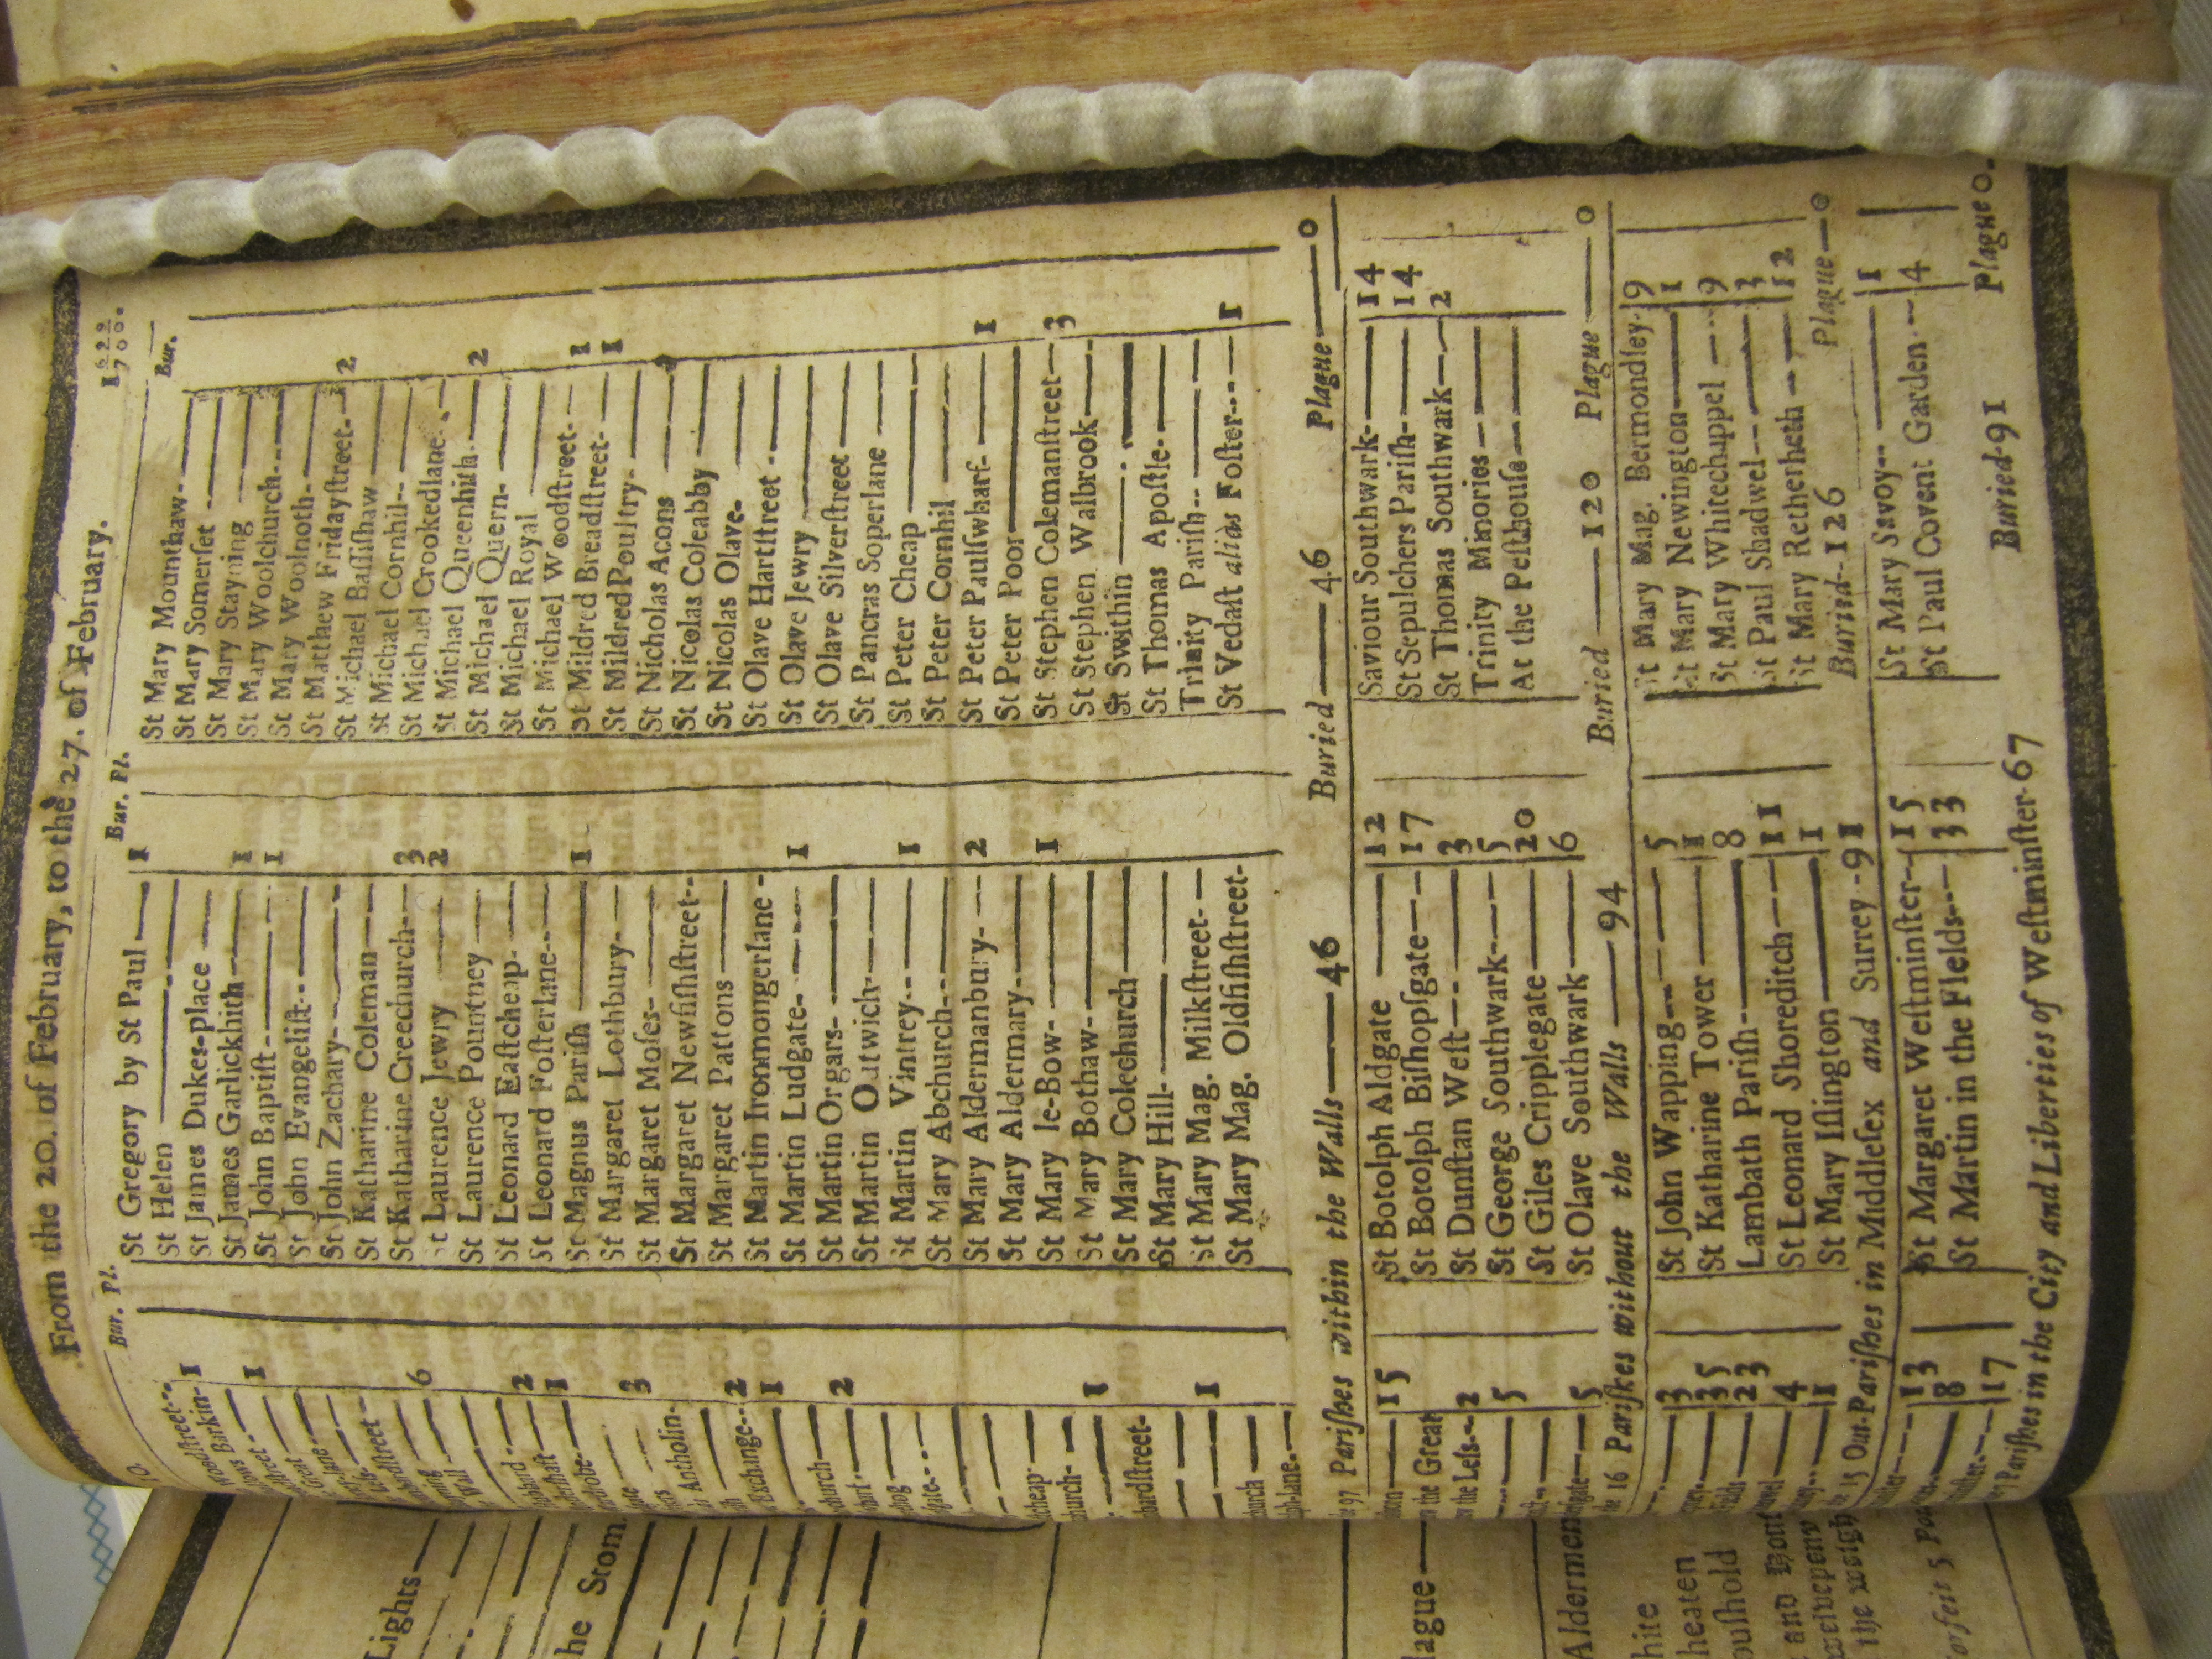 From the 20. of February, to the 27. of February. 1699/1700.
Bur. Pl.
Woodſtreet--
Barkin- 1
ſtreet-
1
Great
lane
ſtreet
Wall
6
2
1
3
Antholin-
Exchange-- 2
1
church
2
cheap
church-
1
1
church
lane.
Bur. Pl.
St Gregory by St Paul 1
St Helen
St James Dukes-place
St James Garlickhith 1
St John Baptiſt- 1
St John Evangeliſt--
St John Zachary-
St Katharine Coleman
St Katharine Creechurch- 3
St Laurence Jewry 2
St Laurence Pountney
St Leonard Eaſtcheap-
St Leonard Foſterlane--
St Magnus Pariſh 1
St Margaret Lothbury-
St Margaret Moſes-
St Margaret Newfiſhſtreet--
St Margaret Pattons
St Martin Ironmongerlane-
St Martin Ludgate- 1
St Martin Orgars-
St Martin Outwich-
St Martin Vintrey-- 1
St Mary Abchurch--
St Mary Aldermanbury- 2
St Mary Aldermary-
St Mary le-Bow- 1
St Mary Bothaw-
St Mary Colechurch
St Mary Hill-
St Mary Mag. Milkſtreet-
St Mary Mag. Oldfiſhſtreet-
Bur.
St Mary Mounthaw-
St Mary Somerſet
St Mary Stayning
St Mary Woolchurch--
St Mary Woolnoth-
St Matthew Fridayſtreet-
St Michael Baſſiſhaw 2
St Michael Cornhil--
St Michael Crookedlane
St Michael Queenhith
St Michael Quern- 2
St Michael Royal
St Michael Woodſtreet-
St Mildred Breadſtreet- 1
St Mildred Poultry- 1
St Nicholas Acons
St Nicolas Coleabby
St Nicolas Olave-
St Olave Hartſtreet
St Olave Jewry
St Olave Silverſtreet
St Pancras Soperlane
St Peter Cheap
St Peter Cornhil
St Peter Paulſwharf- 1
St Peter Poor
St Stephen Colemanſtreet 3
St Stephen Walbrook
St Swithin
St Thomas Apoſtle-
Trinity Pariſh--
St Vedaſt aliàs Foſter--- 1
97 Pariſhes within the Walls 46 Buried 46 Plague 0
15
the Great
the Leſs-- 2
5
5
St Botolph Aldgate 12
St Botolph Biſhopſgate 17
St Dunſtan Weſt 3
St George Southwark 5
St Giles Cripplegate 20
St Olave Southwark 6
Saviour Southwark- 14
St Sepulchers Pariſh- 14
St Thomas Southwark 2
Trinity Minories
At the Peſthouſe
16 Pariſhes without the Walls 94 Buried 120 Plague 0
3
35
23
4
1
St John Wapping 5
St Katharine Tower 1
Lambath Pariſh 8
St Leonard Shoreditch 11
St Mary Iſlington 1
St Mary Mag. Bermondſey- 9
St Mary Newington 1
St Mary Whitechappel 9
St Paul Shadwel-- 3
St Mary Retherheth 12
15 Out-Pariſhes in Middleſex and Surrey-91 Buried-126 Plague 0
13
8
17
St Margaret Weſtminſter-- 15
St Martin in the Fields-- 33
St Mary Savoy-- 1
St Paul Covent Garden 4
7 Pariſhes in the City and Liberties of Weſtminſter-67 Buried-91 Plague 0.
Lights
the Ston
lague
Aldermen
hite
heaten
ouſhold
and
the weigh
orfeit 5